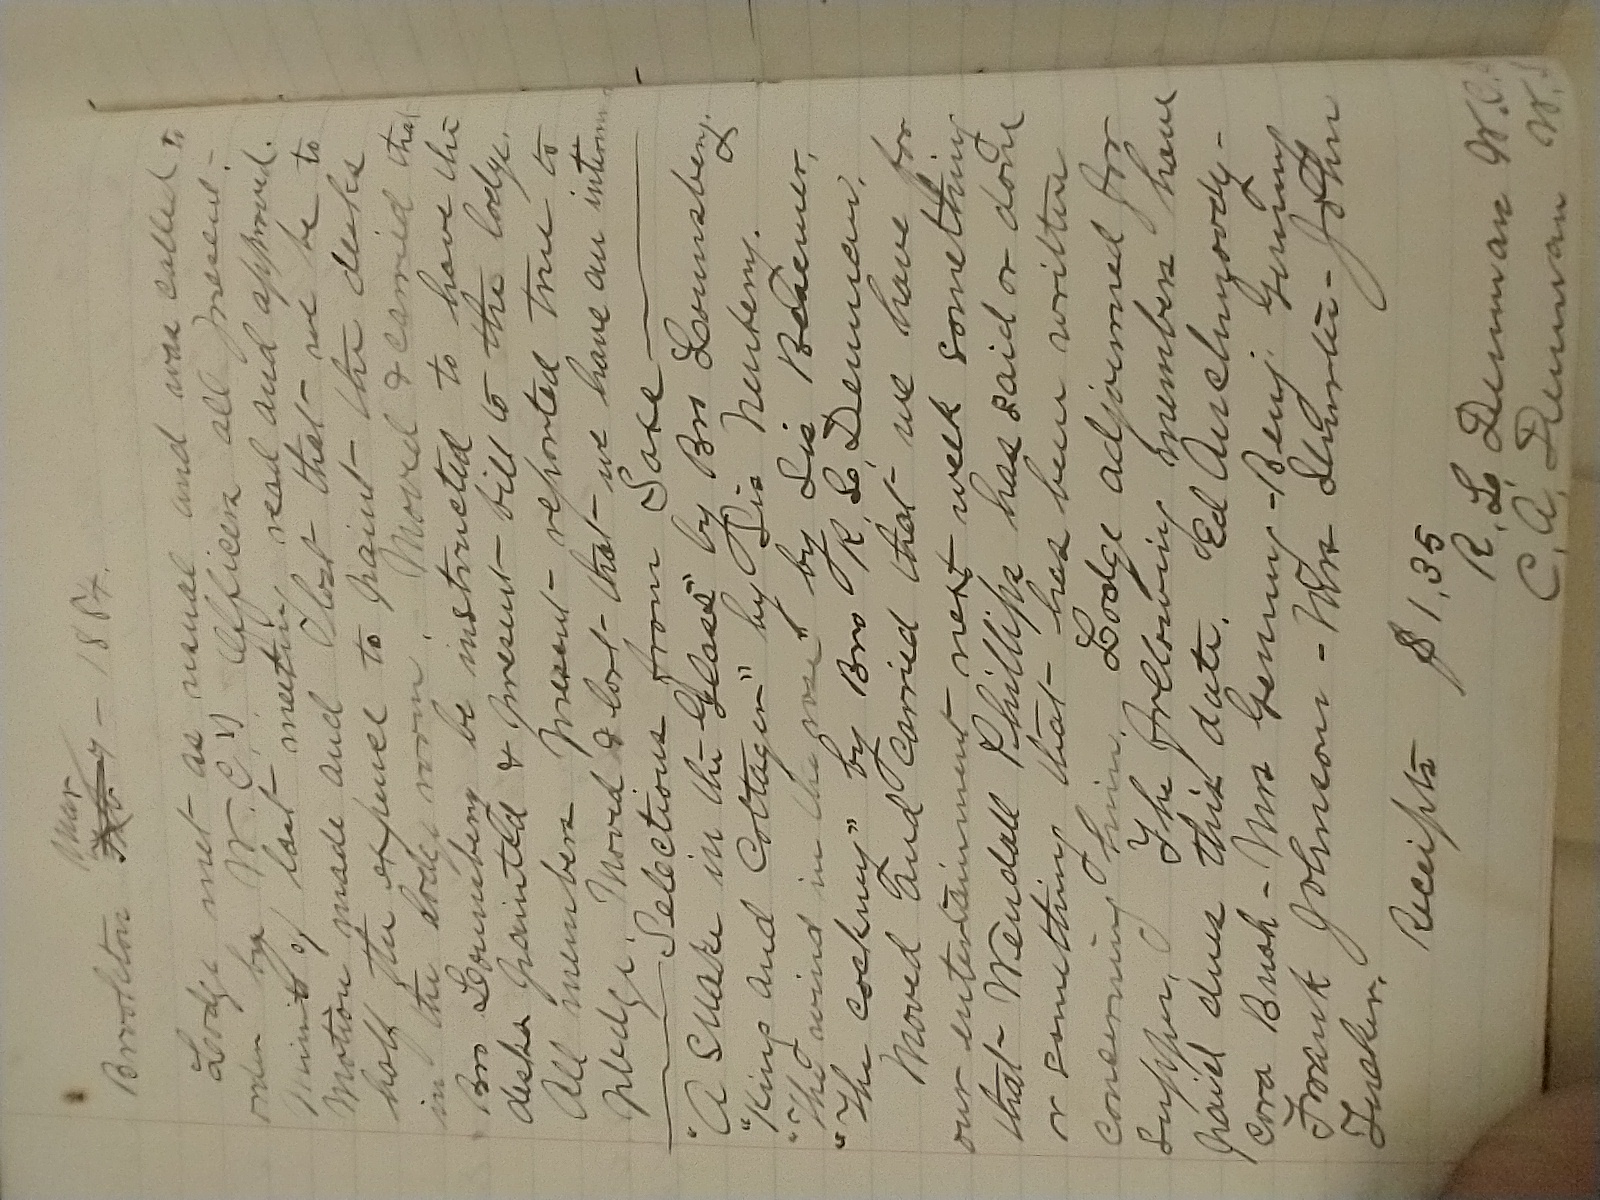 Mar
Brookton Feb 7 - 1884.
Lodge met as usual and was called to
order by W.C.T. Officers all present.
Minits of last meeting read and approved.
Motion made and lost that we be to
half the expence to paint the desks
in the lodge room. Moved & carried that
Bro Lounsbery be instructed to have the
desks painted & present bill to the lodge.
All members present reported true to
pledge. Moved & lost that we have an interm
Selections from Saxe
"A Snake in the Glass" by Bro Lounsbery.
"King and Cottager" by Sis Newbery.
"The wind in the rose" by Sis Besemer,
"The cockney" by Bro R. L. Denman.
Moved and carried that we have for
our entertainment next week something
that Wendall Phillips has said or done
or something that has been written
concerning him. Lodge adjourned for
supper. The following members have
paid dues this date. Ed Auchmoody -
Cora Bush - Mrs Genung - Benj. Genung
Frank Johnson - Mrs Shurter - John
Tucker.
Receipts $1,35
R. L. Denman W.C.
C. A. Denman W.